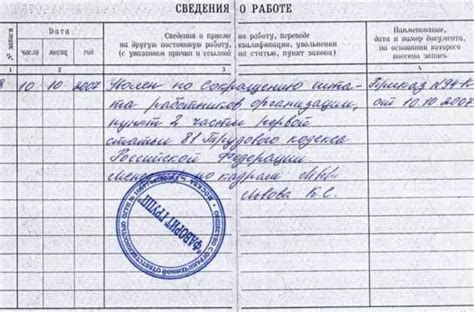 СВЕДЕНИЯ О РАБОТЕ
№ записи
Дата
число
месяц
год
Сведения о приеме на работу, переводе
на другую постоянную работу, квалификации, увольнении
(с указанием причин и ссылкой на статью, пункт закона)
Наименование,
дата и номер документа,
на основании которого
внесена запись
1
2
3
4
10 10 2007 Уволен по сокращению шта- Приказ №94-к
та работников организации, от 10.10.2007
пункт 2 части первой
статьи 81 Трудового кодекса
Российской Федерации
менеджер по кадрам
Львова К.С.
ФАВОРИТ ГРУПП
ОБЩЕСТВО С ОГРАНИЧЕННОЙ ОТВЕТСТВЕННОСТЬЮ
МОСКВА